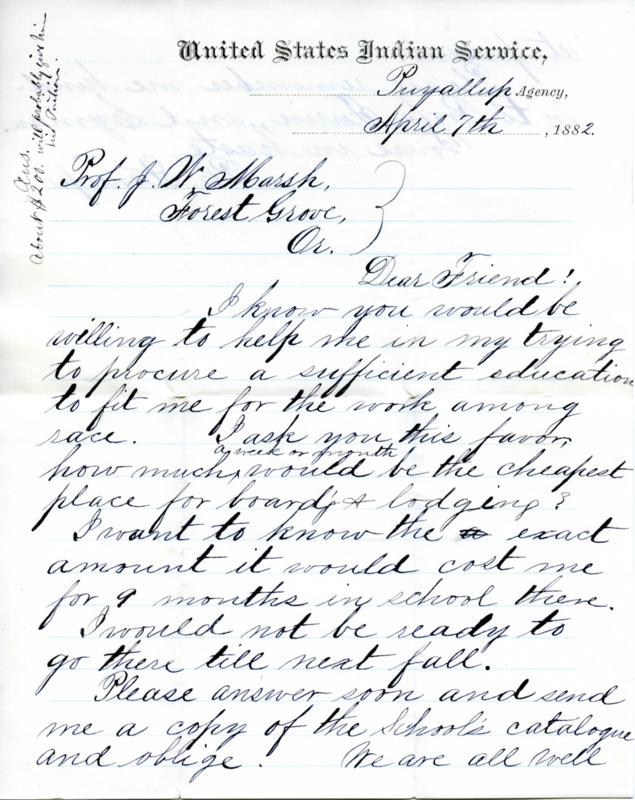 United States Indian Service,
Puyallup Agency,
April 7th, 1882.
Prof. J. W. Marsh,
Forest Grove,
Or.
Dear Friend!
I know you would be
willing to help me in my trying
to procure a sufficient education
to fit me for the work among
race. I ask you this favor,
a week or month
how much would be the cheapest
place for board & lodging?
I want to know the exact
amount it would cost me
for 9 months in school there.
I would not be ready to
go there till next fall.
Please answer soon and send
me a copy of the School's catalogue
and oblige. We are all well
Ans.
About $200. will probably give him
his tuition.